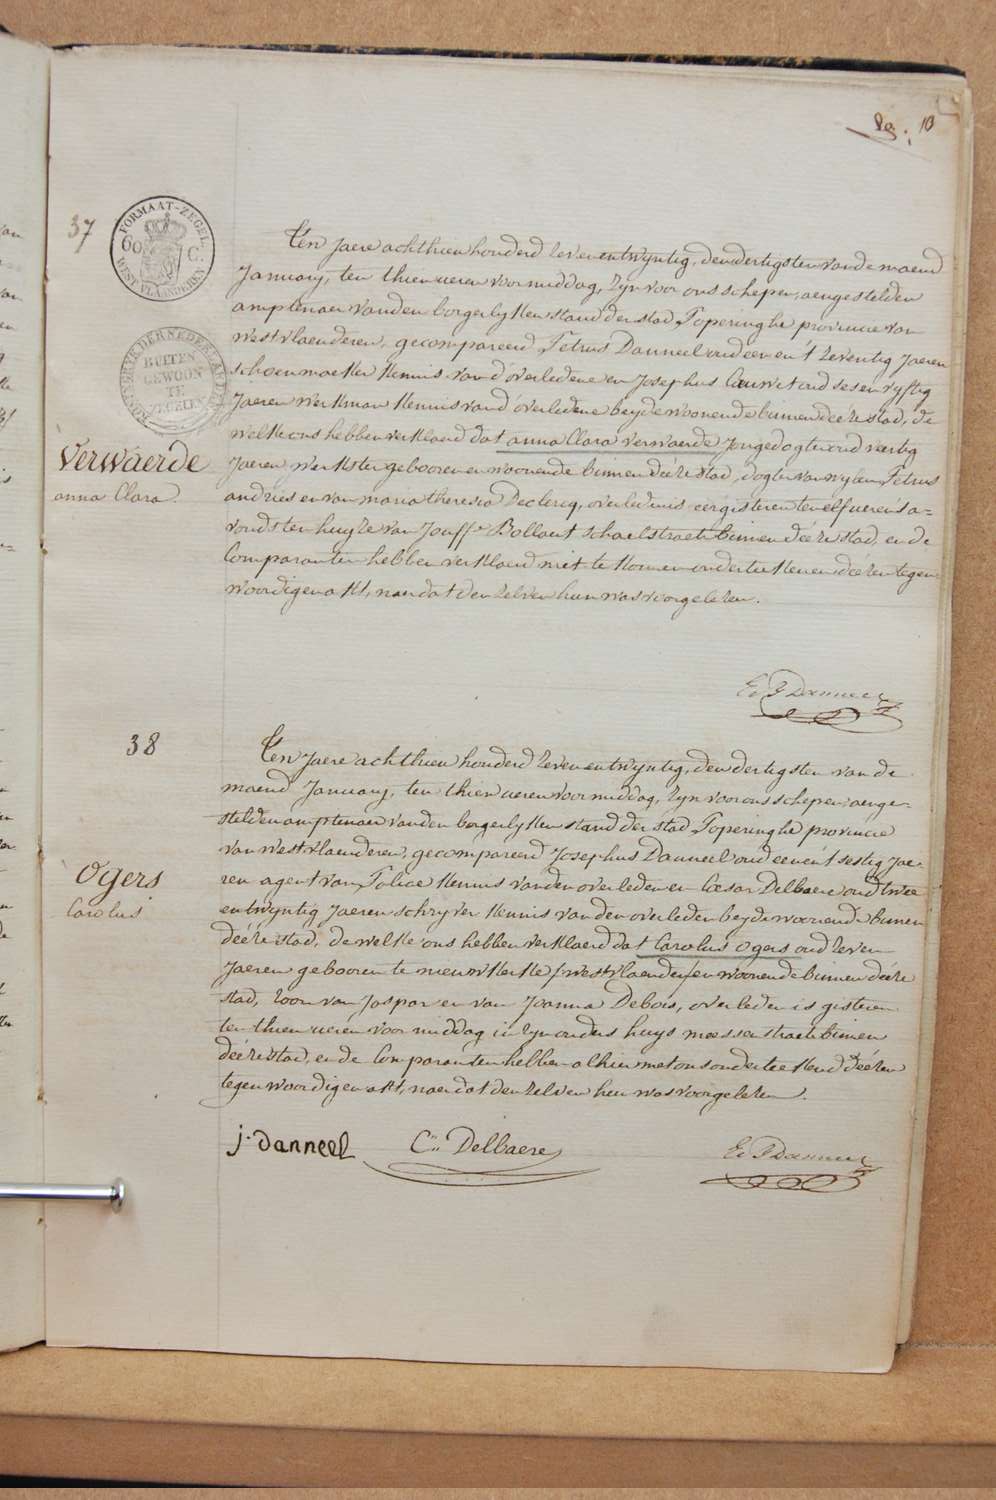 pag. 10
37
FORMAAT-ZEGEL.
60 C.
WEST VLAANDEREN
KONINGRYK DER NEDERLANDEN
BUITEN
GEWOON
TE
ZEGELEN
Verwaerde
anna Clara
Ten Jaere achthien honderd zeven entwyntig, den dertigsten van de maend
January, ten thien ueren voormiddag, zyn voor ons schepen, aengestelden
amptenaer van den borgerlyken stand der stad Poperinghe provincie van
westvlaenderen, gecompareerd Petrus Danneel oud een en 't zeventig Jaeren
schoenmaeker kennis van d'overledene en Josephus Couwet oud ses en vyftig
Jaeren werkman kennis van d'overledene beyde woonende binnen deéze stad, de
welke ons hebben verklaerd dat anna Clara verwaerde Jongedogter oud veertig
Jaeren werkster gebooren en woonende binnen deéze stad, dogter van wylen Petrus
andries en van maria theresia Declercq, overleden is eergisteren ten elf ueren s'a=
vonds ten huyze van Jouffe Bollaert schaelstraete binnen deéze stad, en de
Comparanten hebben verklaerd niet te konnen onderteekenen deézen tegen
woordigen akt, naer dat den zelven hun was voorgelezen.
38
Ogers
Carolus
Ten Jaere achthien honderd zeven entwyntig, den dertigsten van de
maend January, ten thien ueren voormiddag, zyn voor ons schepen, aenge=
stelden amptenaer van den borgerlyken stand der stad Poperinghe provincie
van westvlaenderen, gecompareerd Josephus Danneel oud een en 't sestig Jae=
ren agent van Police kennis van den overleden en Cesar Delbaere oud twee
entwyntig Jaeren schryver kennis van den overleden beyde woonende binnen
deéze stad, de welke ons hebben verklaerd dat Carolus Ogers oud zeven
Jaeren gebooren te nieuwkerke (westvlaenderen) en woonende binnen deéze
stad, zoon van Jaspar en van Joanna Debois, overleden is gisteren
ten thien ueren voormiddag in zyn ouders huys meessenstraete binnen
deéze stad, en de Comparanten hebben alhier met ons onderteekend deézen
tegenwoordigen akt, naer dat den zelven hun was voorgelezen.
j. Danneel
C. Delbaere